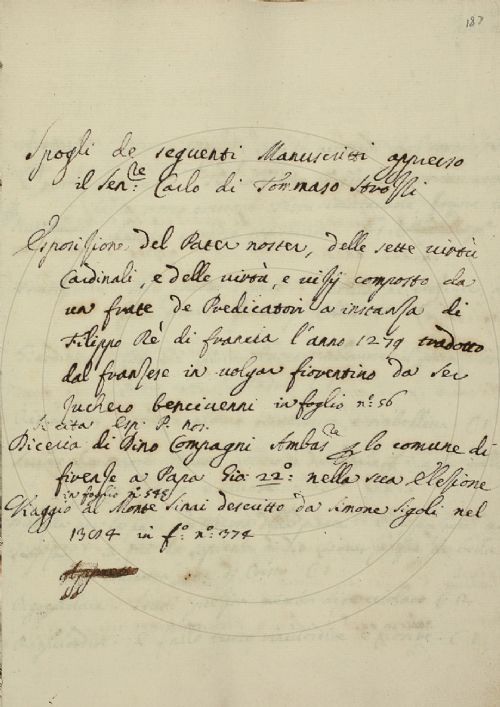 187
Spogli de seguenti Manuscritti appresso
il Sen:re Carlo di Tommaso Strozzi
Esposizione del Pater noster, delle sette virtù
Cardinali, e delle virtù, e vizij composto da
un frate de Predicatori a instanza di
Filippo Rè di francia l'anno 1279 tradotto
dal franzese in volgar fiorentino da Ser
Zuchero bencivenni in foglio n:o 56
Si cita Esp: P. nos:
Diceria di Dino Compagni Ambas:re lo comune di
firenze a Papa Gio: 22o: nella sua Elezione
in foglio n:o 548
Viaggio al Monte Sinai descritto da Simone Sigoli nel
in f:o n:o 374